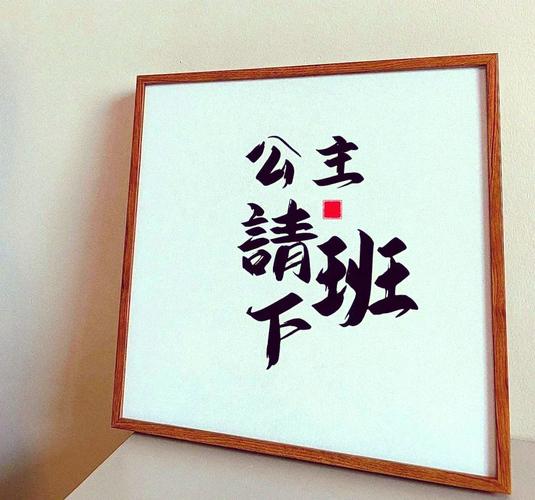 公主
請
下班